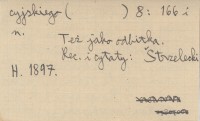 cyjskiego ( ) 8: 166 i
n.
Też jako odbitka.
Rec. i cytaty: Strzelecki
H. 1897.